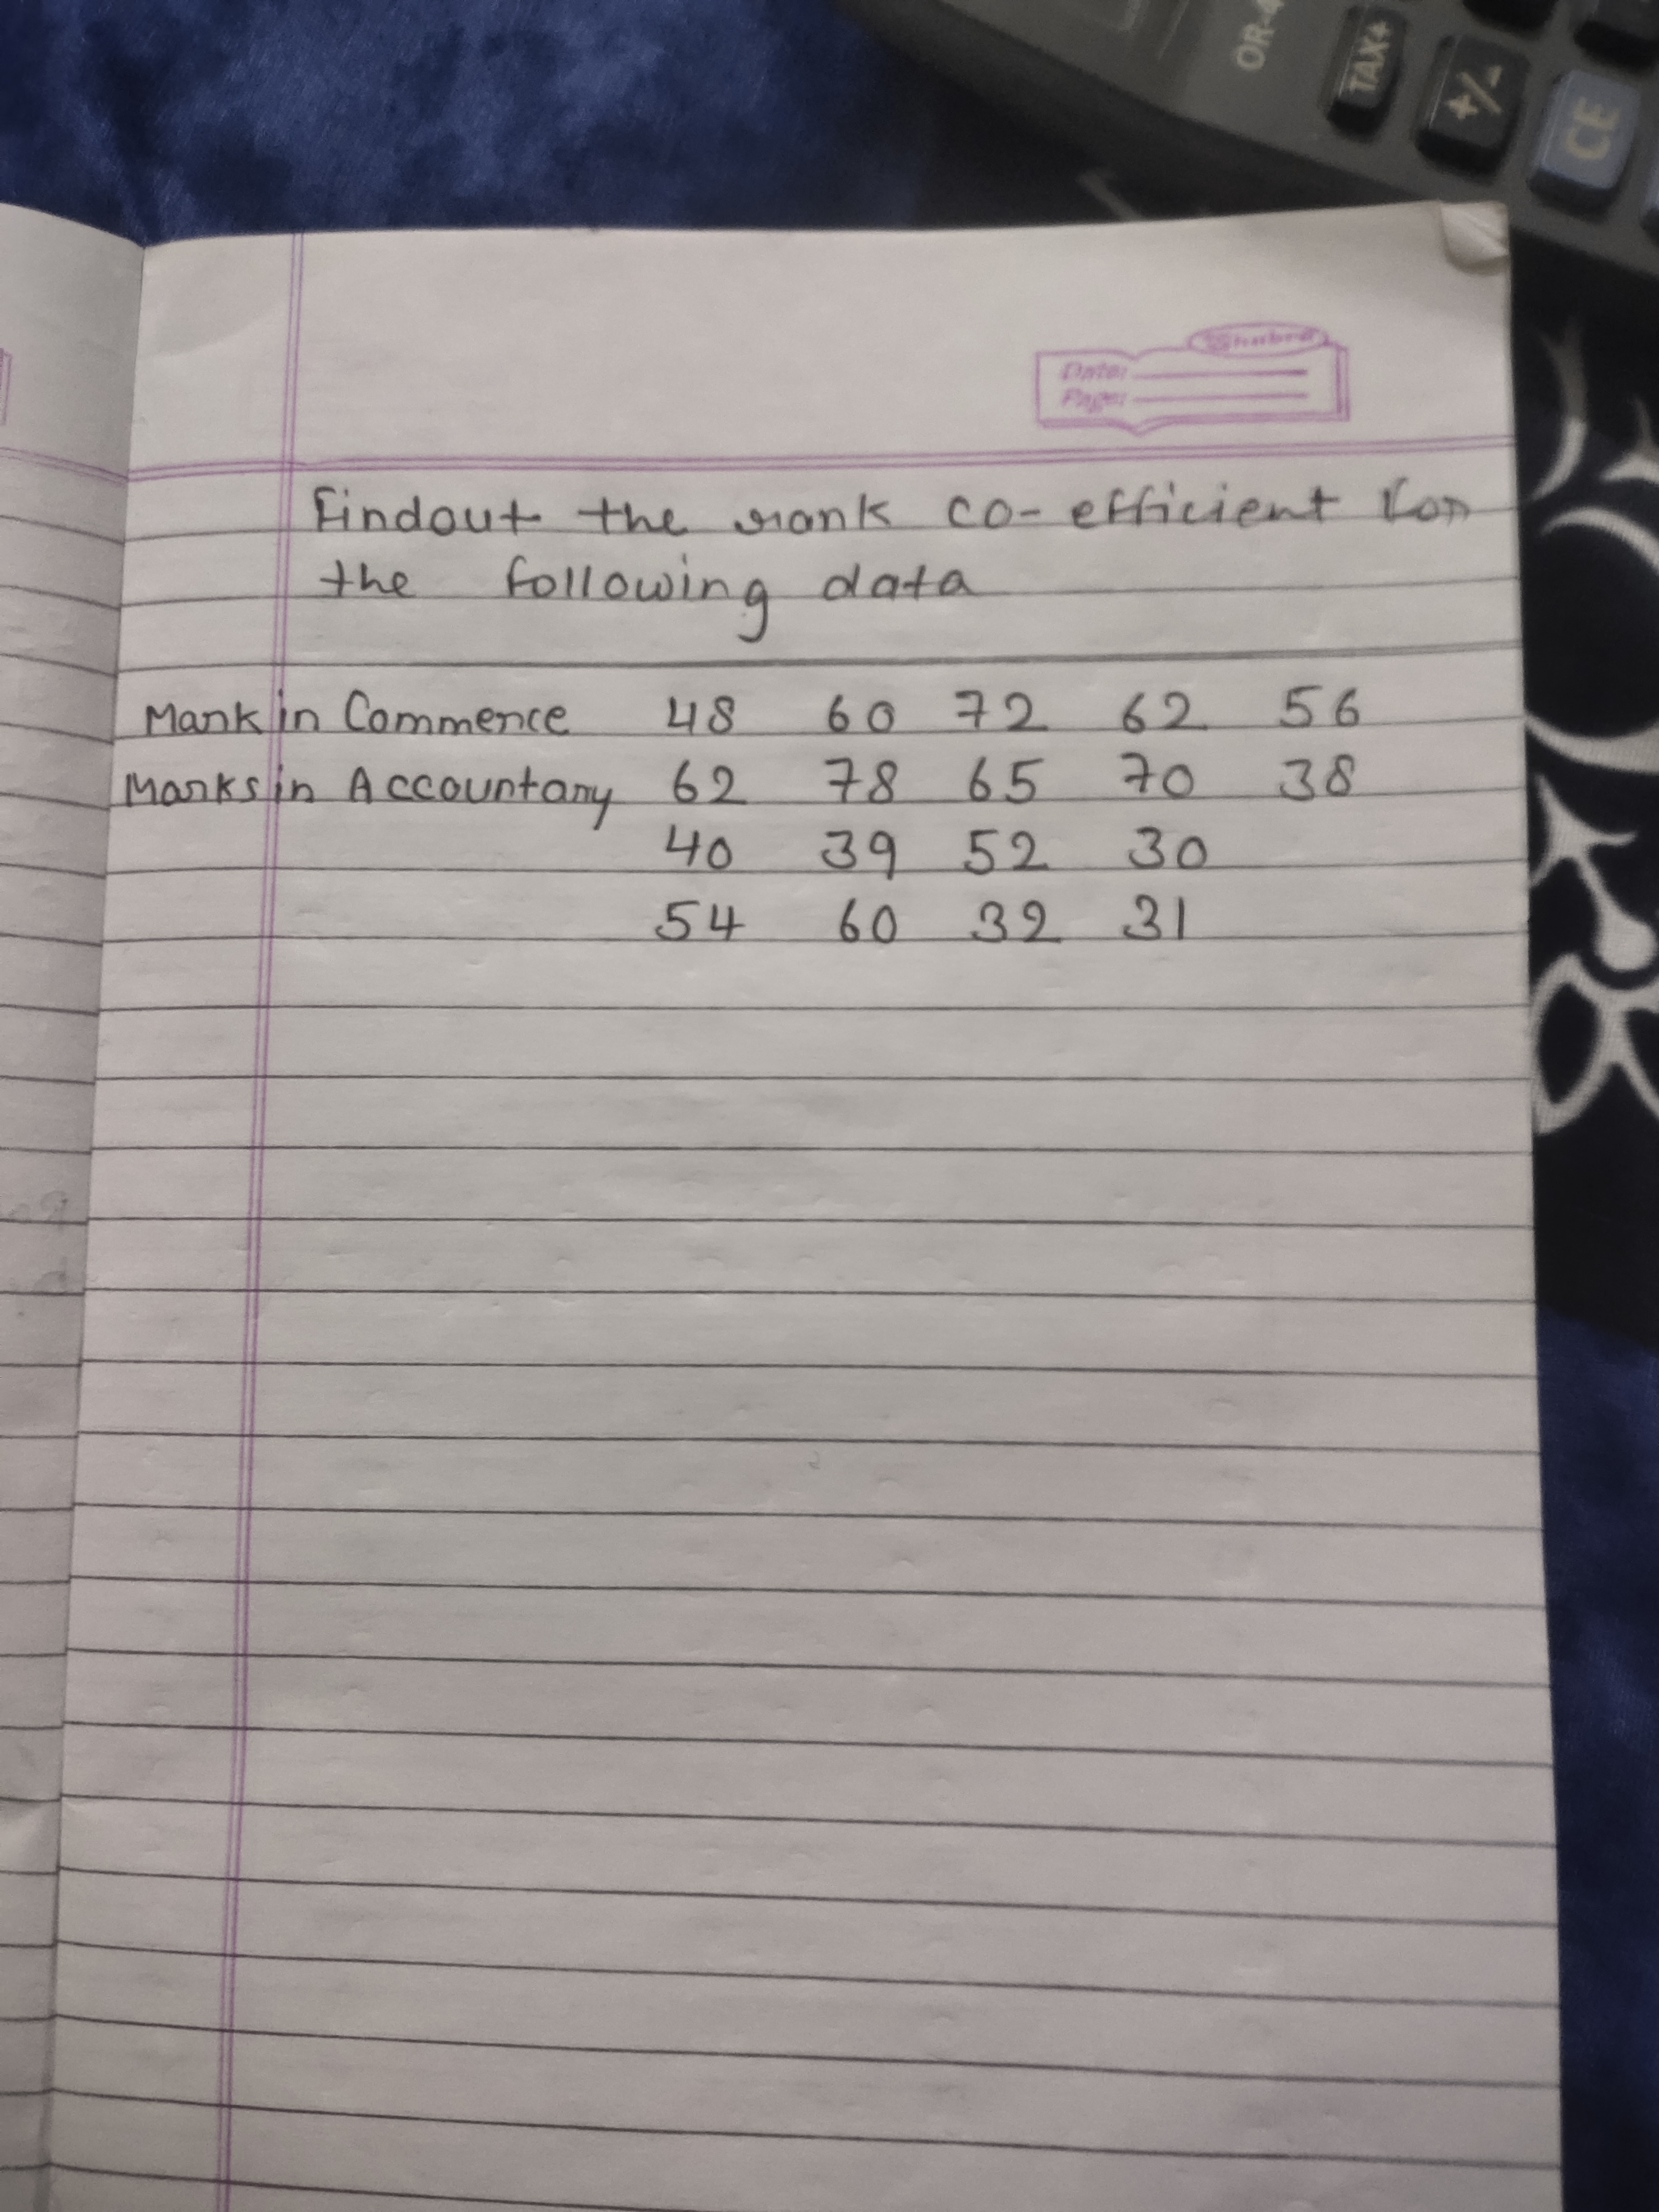 OR-4
TAX+
+/-
CE
Date:
Page:
Findout the rank co-efficient for
the following data
Mark in Commerce 48 60 72 62 56
Marks in Accountany 62 78 65 70 38
40 39 52 30
54 60 32 31